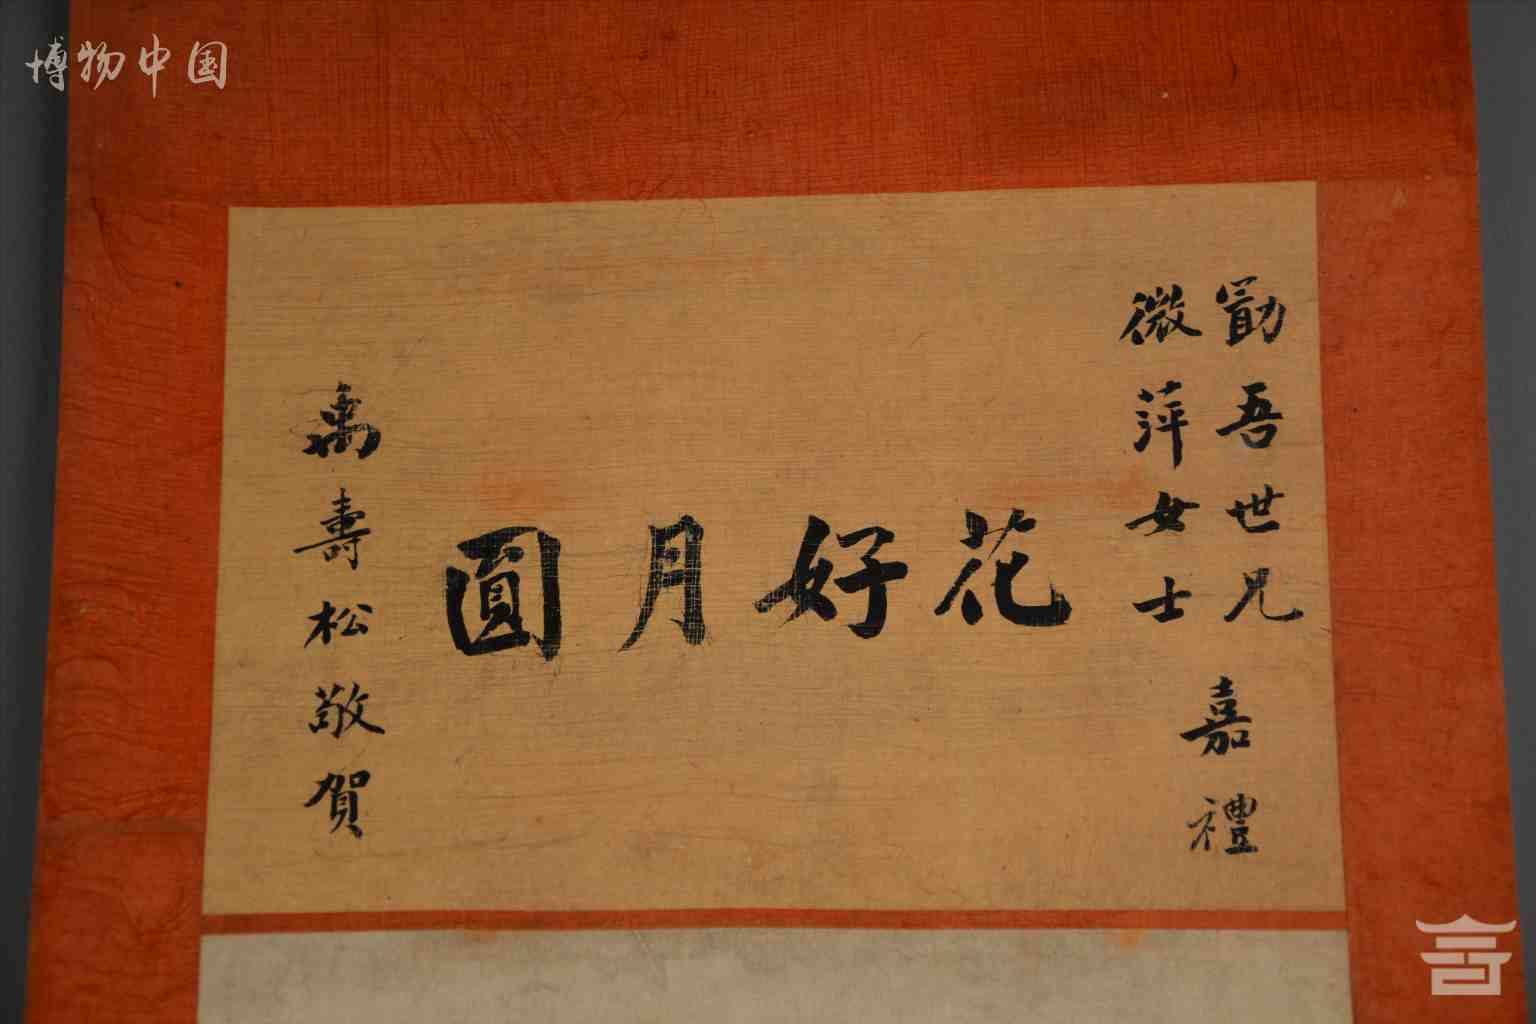 博物中国
勖吾世兄
微萍女士
嘉禮
花好月圓
萬壽松敬賀